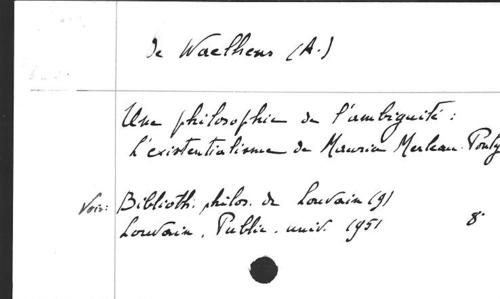 De Waelhens (A.)
Une philosophie de l'ambiguité :
L'existentialisme de Maurice Merleau-Ponty
Voir: Biblioth. philos. de Louvain (9)
Louvain, Public. univ. 1951 8°